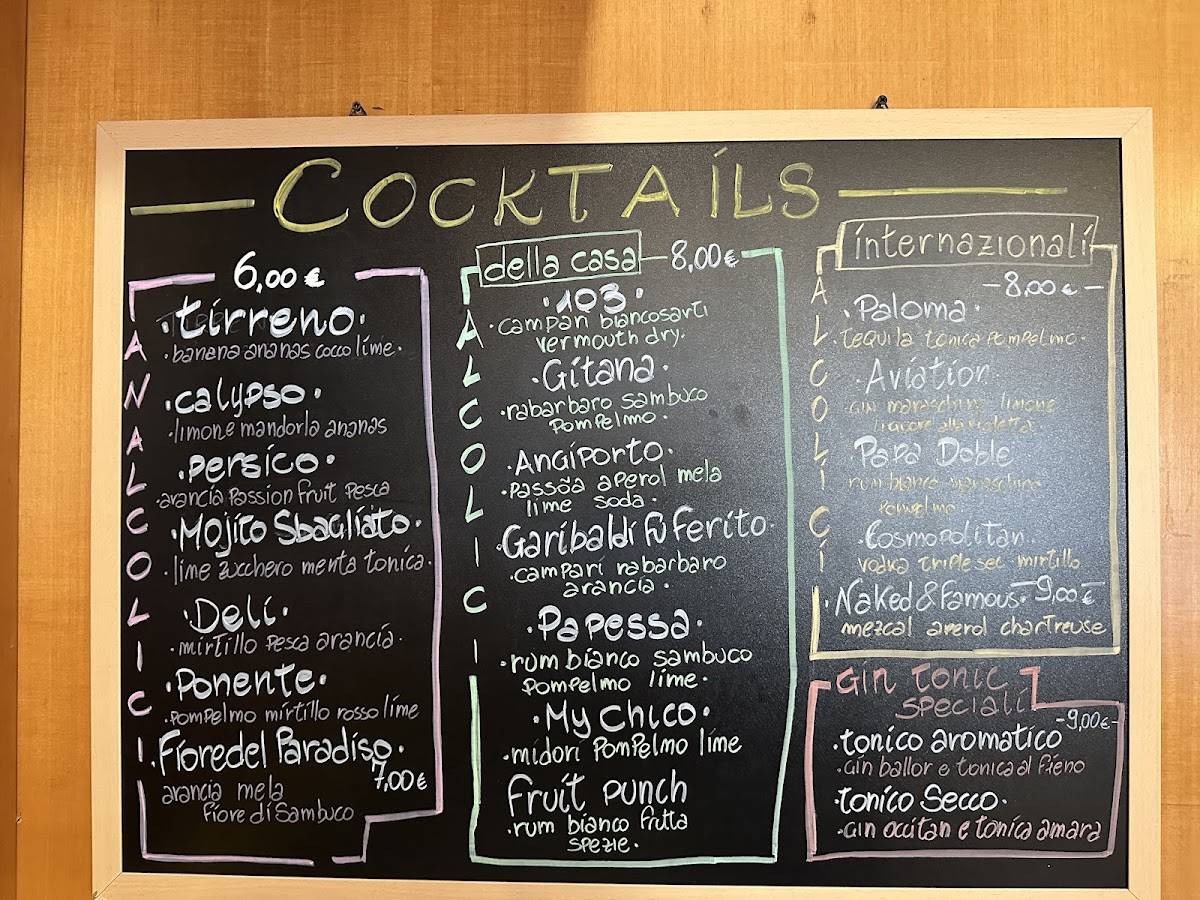 COCKTAILS
6,00 €
ANALCOLICI
·tirreno·
·banana ananas cocco lime·
·calypso·
·limone mandorla ananas
·persico·
·arancia passion fruit pesca
·Mojito Sbagliato·
·lime zucchero menta tonica·
·Deli·
·mirtillo pesca arancia·
·Ponente·
·pompelmo mirtillo rosso lime
·Fiore del Paradiso·
7,00 €
arancia mela
fiore di Sambuco
della casa 8,00 €
ALCOLICI
·103·
·campari biancosarti
vermouth dry·
·Gitana·
·rabarbaro sambuco
pompelmo·
·Angiporto·
·passoã aperol mela
lime soda·
·Garibaldi fù ferito·
·campari rabarbaro
arancia·
·Papessa·
·rum bianco sambuco
pompelmo lime·
·My Chico·
·midori pompelmo lime
fruit punch
·rum bianco frutta
spezie·
internazionali
-8,00 €-
ALCOLICI
·Paloma·
·tequila tonica pompelmo·
·Aviation
gin maraschino limone
liquore alla violetta
Papa Doble
rum bianco maraschino
pompelmo
·Cosmopolitan·
vodka triple sec mirtillo
·Naked & Famous· -9,00 €-
mezcal aperol chartreuse
Gin tonic
speciali
-9,00 €-
·tonico aromatico
·gin ballor e tonica al fieno
·tonico secco·
·gin occitan e tonica amara